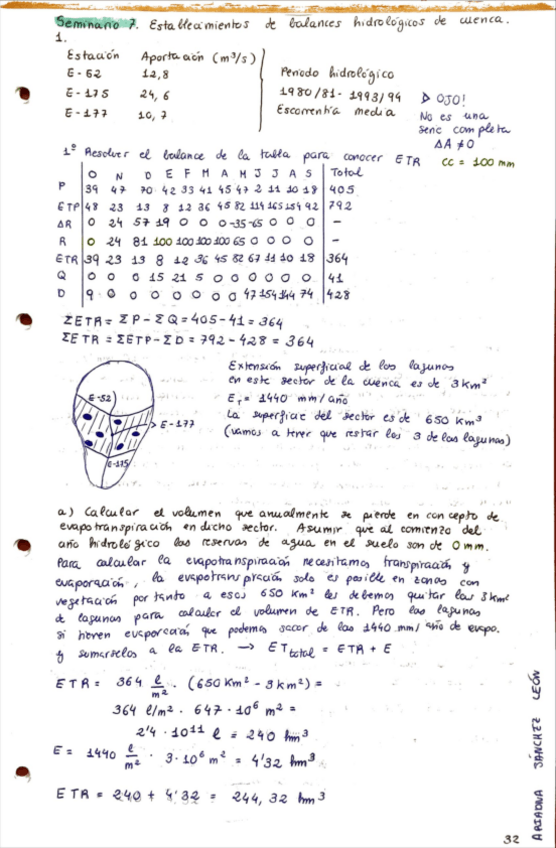 Seminario 7. Establecimientos de balances hidrológicos de cuenca.
1.
Estación Aportación (m³/s)
E-52 12,8
E-175 24,6
E-177 10,7
Periodo hidrológico
1980/81-1993/94
Escorrentía media
▷ OJO!
No es una
serie completa
ΔA ≠ 0
1º Resolver el balance de la tabla para conocer ETR CC = 100 mm
O N D E F M A M J J A S Total
P 39 47 70 42 33 41 45 47 2 11 10 18 405
ETP 48 23 13 8 12 36 45 82 114 165 154 92 792
ΔR 0 24 57 19 0 0 0 -35 -65 0 0 0 -
R 0 24 81 100 100 100 100 65 0 0 0 0 -
ETR 39 23 13 8 12 36 45 82 67 11 10 18 364
Q 0 0 0 15 21 5 0 0 0 0 0 0 41
D 9 0 0 0 0 0 0 0 47 154 144 74 428
ΣETR = ΣP - ΣQ = 405 - 41 = 364
ΣETR = ΣETP - ΣD = 792 - 428 = 364
E-52
E-177
E-175
Extensión superficial de las lagunas
en este sector de la cuenca es de 3 km²
E_T = 1440 mm/año
La superficie del sector es de 650 km³
(vamos a tener que restar los 3 de las lagunas)
a) Calcular el volumen que anualmente se pierde en concepto de
evapotranspiración en dicho sector. Asumir que al comienzo del
año hidrológico las reservas de agua en el suelo son de 0 mm.
Para calcular la evapotranspiración necesitamos transpiración y
evaporación, la evapotranspiración solo es posible en zonas con
vegetación por tanto a esos 650 Km² les debemos quitar los 3 km²
de lagunas para calcular el volumen de ETR. Pero las lagunas
si tienen evaporación que podemos sacar de los 1440 mm/año de evapo.
y sumarselos a la ETR. → ET total = ETR + E
ETR = 364 l/m² · (650 Km² - 3 km²) =
364 l/m² · 647 · 10⁶ m² =
2'4 · 10¹¹ l = 240 hm³
E = 1440 l/m² · 3 · 10⁶ m² = 4'32 hm³
ETR = 240 + 4'32 = 244,32 hm³
ARIADNA SÁNCHEZ LEÓN
32